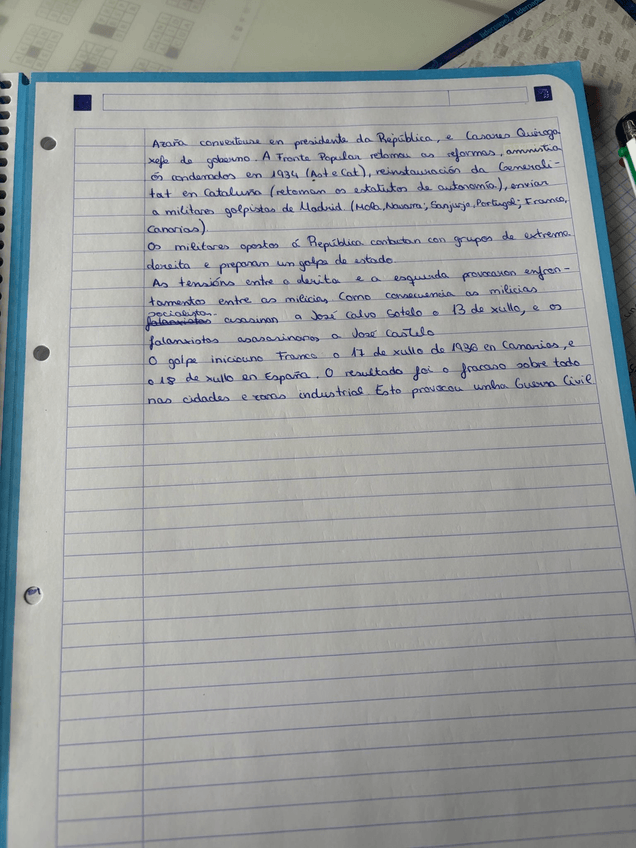 Azaña converteuse en presidente da República, e Casares Quiroga
xefe de goberno. A Fronte Popular retomou as reformas, amnistía
ós condenados en 1934 (Ast e Cat), reinstauración da Generali-
tat en Cataluna (retoman os estatutos de autonomía), envían
a militares golpistas de Madrid. (Mola, Navarra; Sanjurjo, Portugal; Franco,
Canarias).
Os militares opostos á República contactan con grupos de extrema
dereita e preparan un golpe de estado.
As tensións entre a derita e a esquerda provocaron enfron-
tamentos entre as milicias. Como consecuencia as milicias
socialistas
falanxistas asasinan a José Calvo Sotelo o 13 de xullo, e os
falanxistas asasasinaros a José Castelo
O golpe iniciouno Franco o 17 de xullo de 1936 en Canarias, e
o 18 de xullo en España. O resultado foi o fracaso sobre todo
nas cidades e zonas industrial. Esto provocou unha Guerra Civil